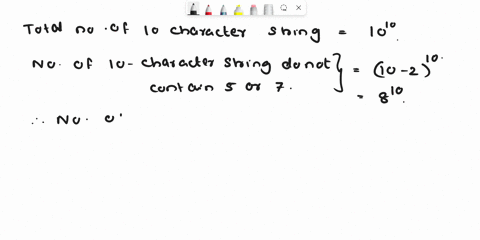 Total no. of 10 character string = 10^10.
No. of 10-character string do not contain 5 or 7. } = (10-2)^10.
= 8^10.
∴ No. o